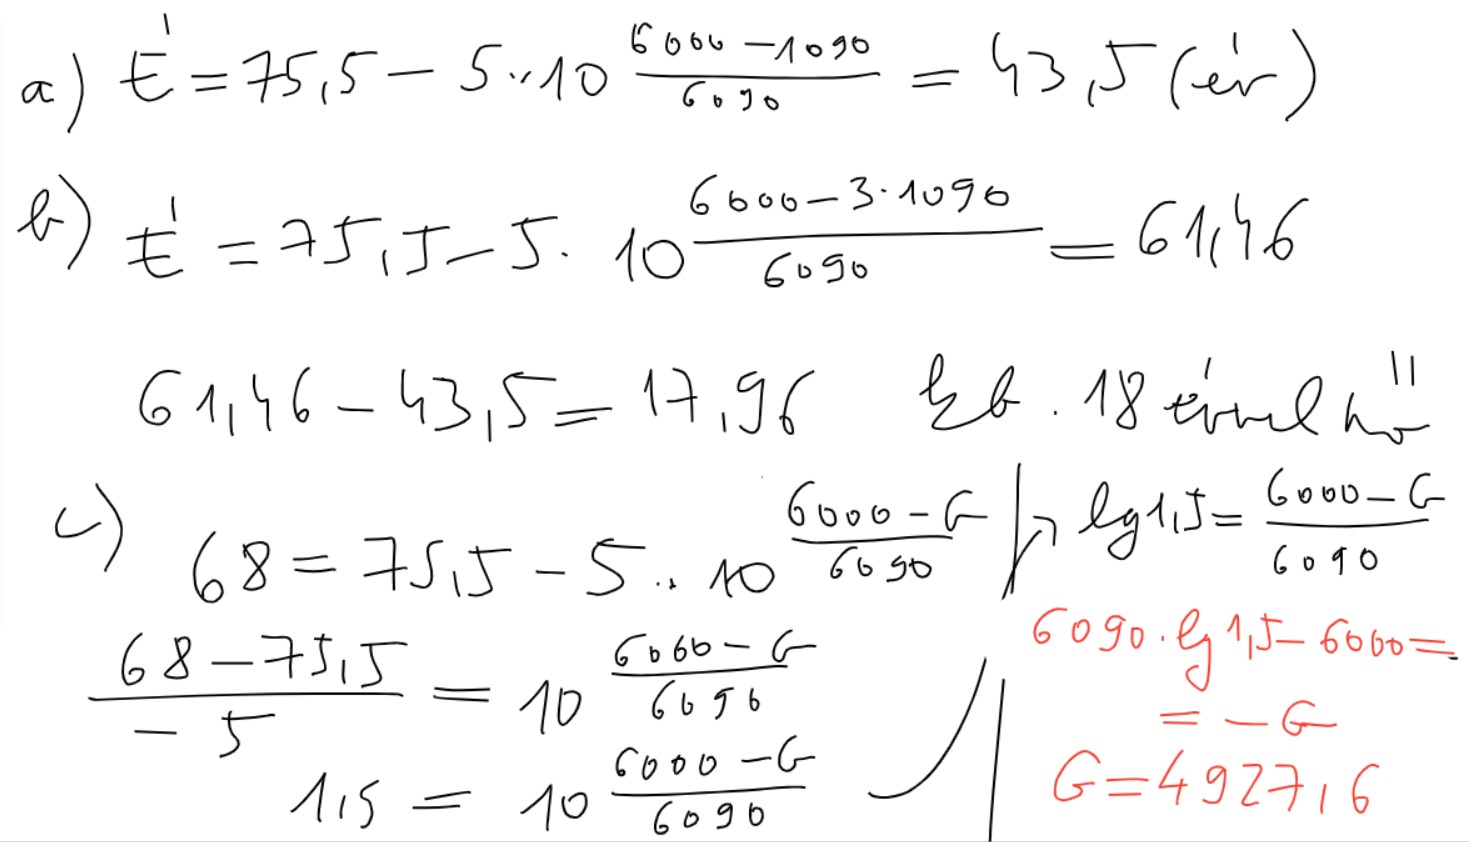 a) É = 75,5 - 5·10^((6000-1090)/6090) = 43,5 (év)
b) É = 75,5 - 5·10^((6000-3·1090)/6090) = 61,46
61,46 - 43,5 = 17,96 kb. 18 évvel nő
c) 68 = 75,5 - 5·10^((6000-G)/6090)
(68-75,5)/(-5) = 10^((6000-G)/6090)
1,5 = 10^((6000-G)/6090)
lg1,5 = (6000-G)/6090
6090·lg1,5 - 6000 =
= -G
G = 4927,6